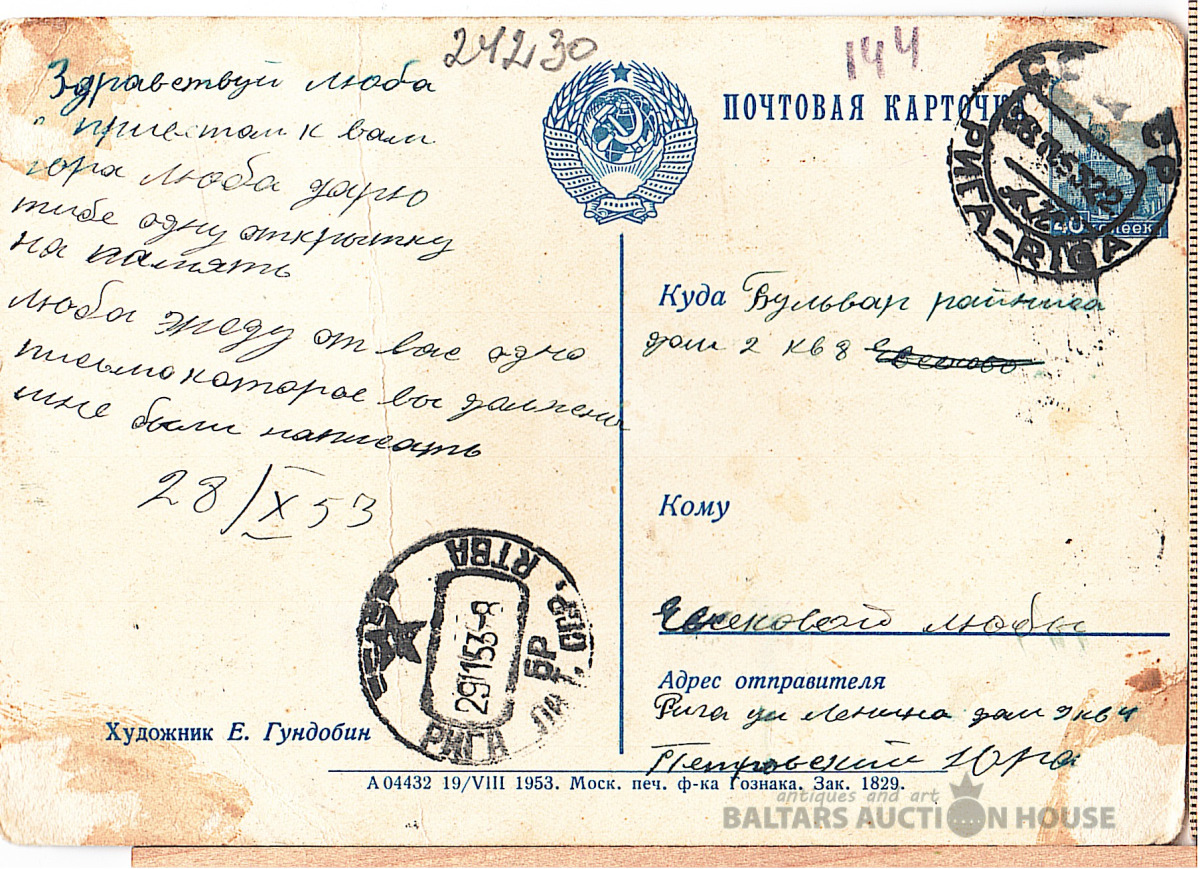 24230
144
Здравствуй люба
с приветом к вам
юра люба дарю
тибе одну открытку
на память
люба жеду от вас одно
письмо которое вы должени
мне были написать
28/X 53
Художник Е. Гундобин
ПОЧТОВАЯ КАРТОЧКА
СССР
РИГА-RIGA
40 копеек
Куда Бульвар райниса
дом 2 кв 8
Кому
любы
Адрес отправителя
Рига ул Ленина дом 9 кв 4
Петровский Юра
RTBA
291153-8
РИГА
А 04432 19/VIII 1953. Моск. печ. ф-ка Гознака. Зак. 1829.
antiques and art
BALTARS AUCTION HOUSE